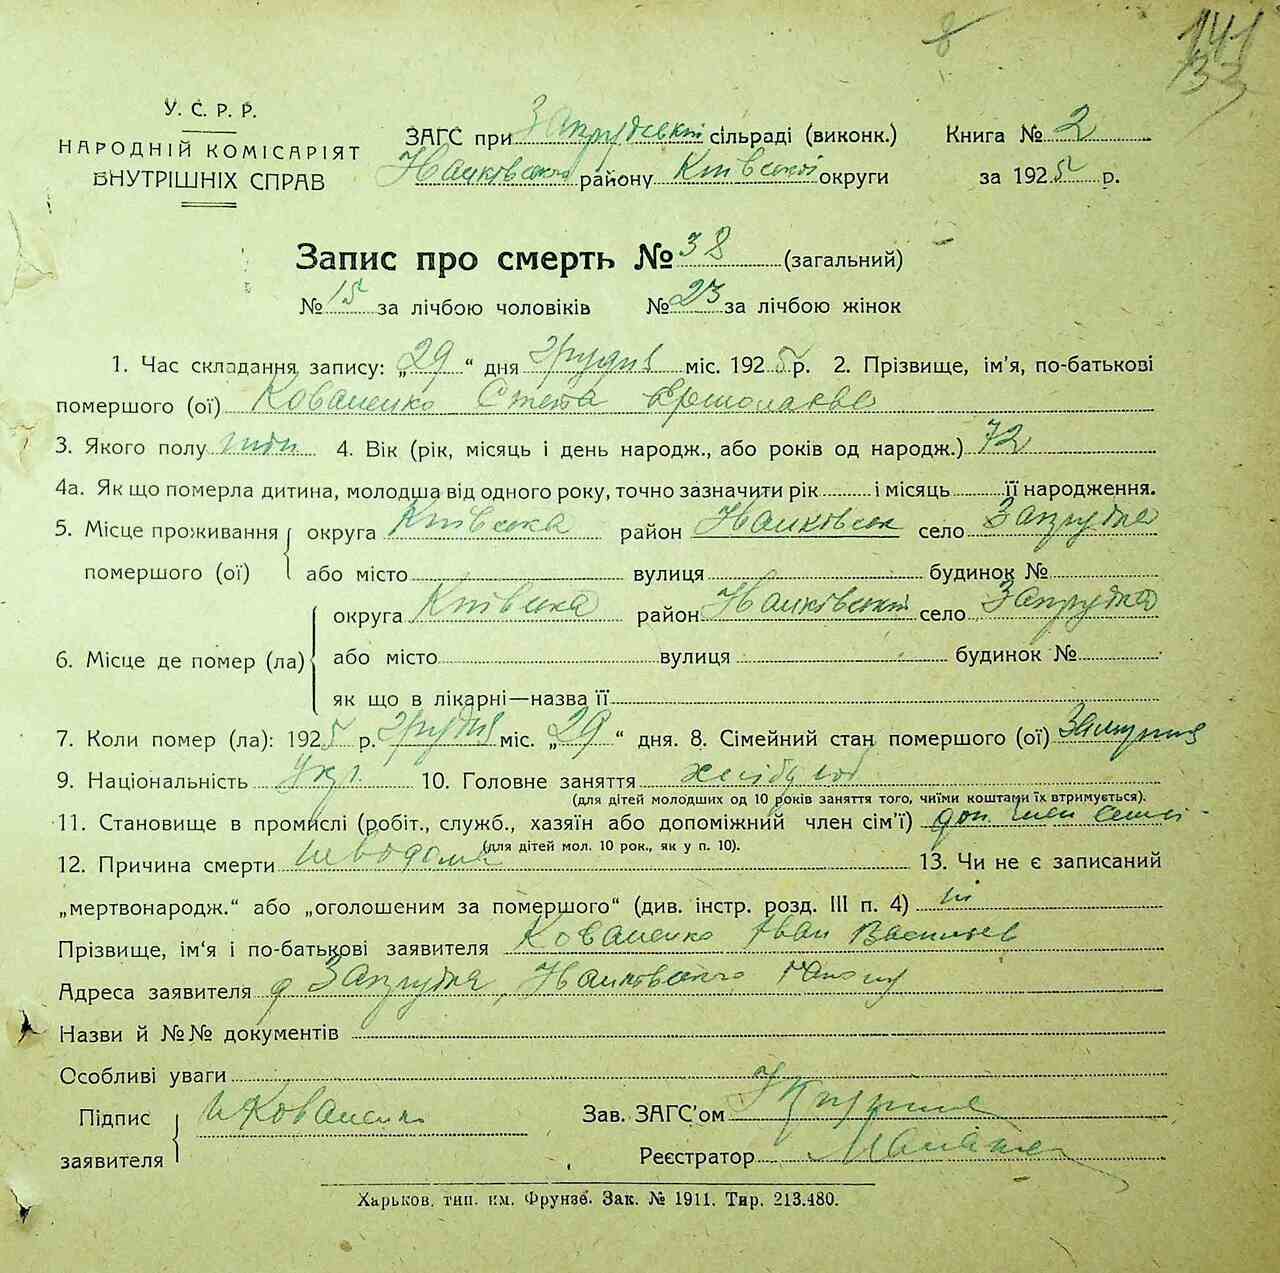 141
33
У. С. Р. Р.
НАРОДНІЙ КОМІСАРІЯТ
ВНУТРІШНІХ СПРАВ
ЗАГС при Запрудській сільраді (виконк.) Книга № 2
району Київської округи за 1925 р.
Запис про смерть № 38 (загальний)
№ 15 за лічбою чоловіків № 23 за лічбою жінок
1. Час складання запису: „29“ дня грудня міс. 1925 р. 2. Прізвище, ім'я, по-батькові
помершого (ої) Коваленко
3. Якого полу 4. Вік (рік, місяць і день народж., або років од народж.) 72
4а. Як що померла дитина, молодша від одного року, точно зазначити рік і місяць її народження.
5. Місце проживання округа Київська район село Запрудка
помершого (ої) або місто вулиця будинок №
округа Київська район село Запрудка
6. Місце де помер (ла) або місто вулиця будинок №
як що в лікарні—назва її
7. Коли помер (ла): 1925 р. грудня міс. „29“ дня. 8. Сімейний стан помершого (ої) Замужня
9. Національність Укр. 10. Головне заняття хлібороб
(для дітей молодших од 10 років заняття того, чиїми коштами їх втримується).
11. Становище в промислі (робіт., служб., хазяїн або допоміжний член сім'ї) доп. член семьі
(для дітей мол. 10 рок., як у п. 10).
12. Причина смерти 13. Чи не є записаний
„мертвонародж.“ або „оголошеним за помершого“ (див. інстр. розд. III п. 4) ні
Прізвище, ім'я і по-батькові заявителя Коваленко Іван Васильев
Адреса заявителя Запрудка,
Назви й №№ документів
Особливі уваги
Підпис И Коваленко Зав. ЗАГС'ом
заявителя Реєстратор
Харьков, тип. им. Фрунзе. Зак. № 1911. Тир. 213.480.